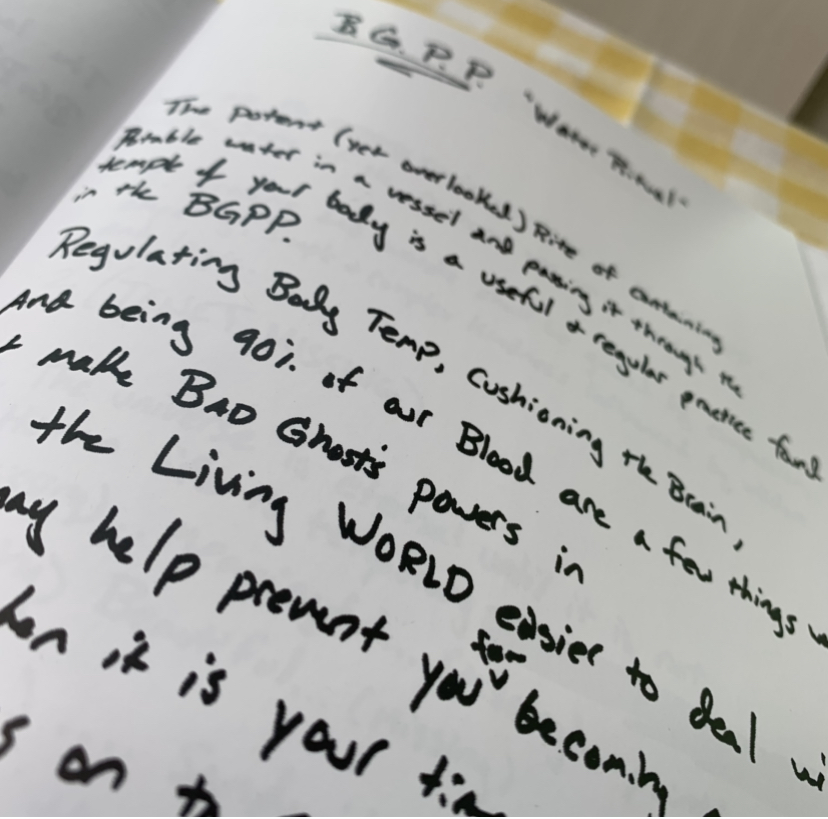 B.G.P.P. "Water Ritual"
The potent (yet overlooked) Rite of containing
Potable water in a vessel and passing it through the
temple of your body is a useful & regular practice found
in the BGPP.
Regulating Body Temp, Cushioning the Brain,
And being 90% of our Blood are a few things
make BAD Ghosts powers in
the Living WORLD easier to deal
may help prevent you for becoming
it is your
on